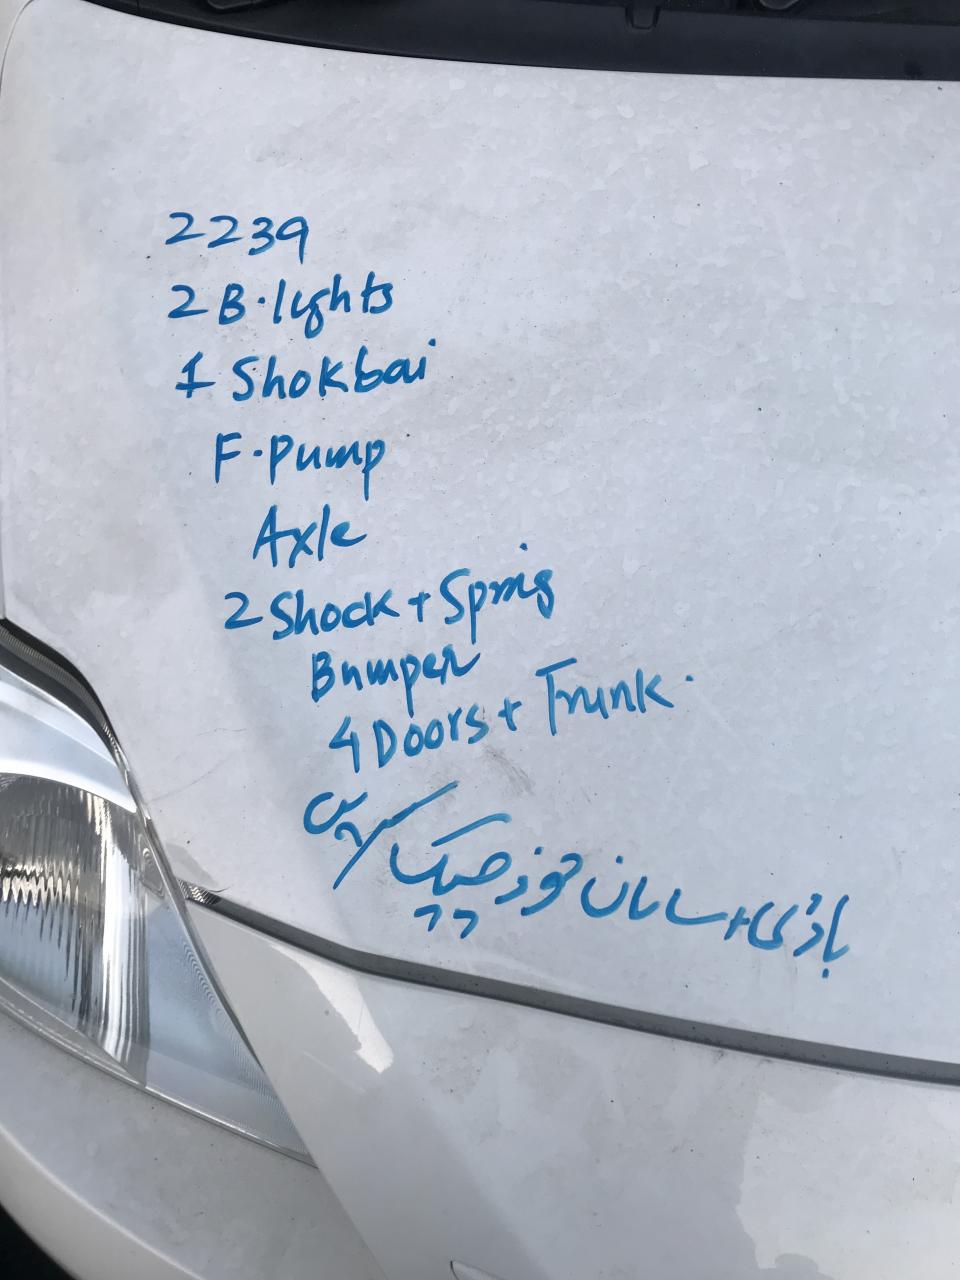 2239
2 B.lights
1 Shokbai
F.Pump
Axle
2 Shock + Sprnig
Bumper
4 Doors + Trunk.
باڈی + سامان خود چیک کریں